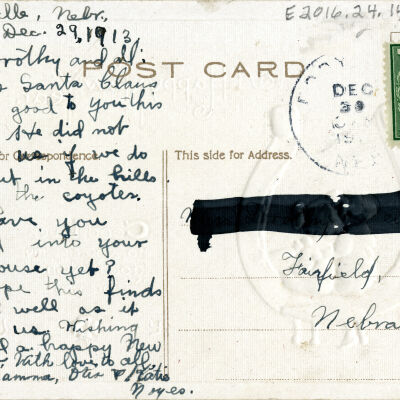 lle, Nebr,
Dec. 29, 1913,
rothy and all:
Santa Claus
good to you this
He did not
us, if we do
in the hills
the coyotes.
ave you
into your
ouse yet?
pe this finds
well as it
us. Wishing
a happy New
With love to all,
amma, Otis & Katie
Noyes.
E2016.24.14
POST CARD
or Correspondence.
This side for Address.
DEC
Fairfield,
Nebra